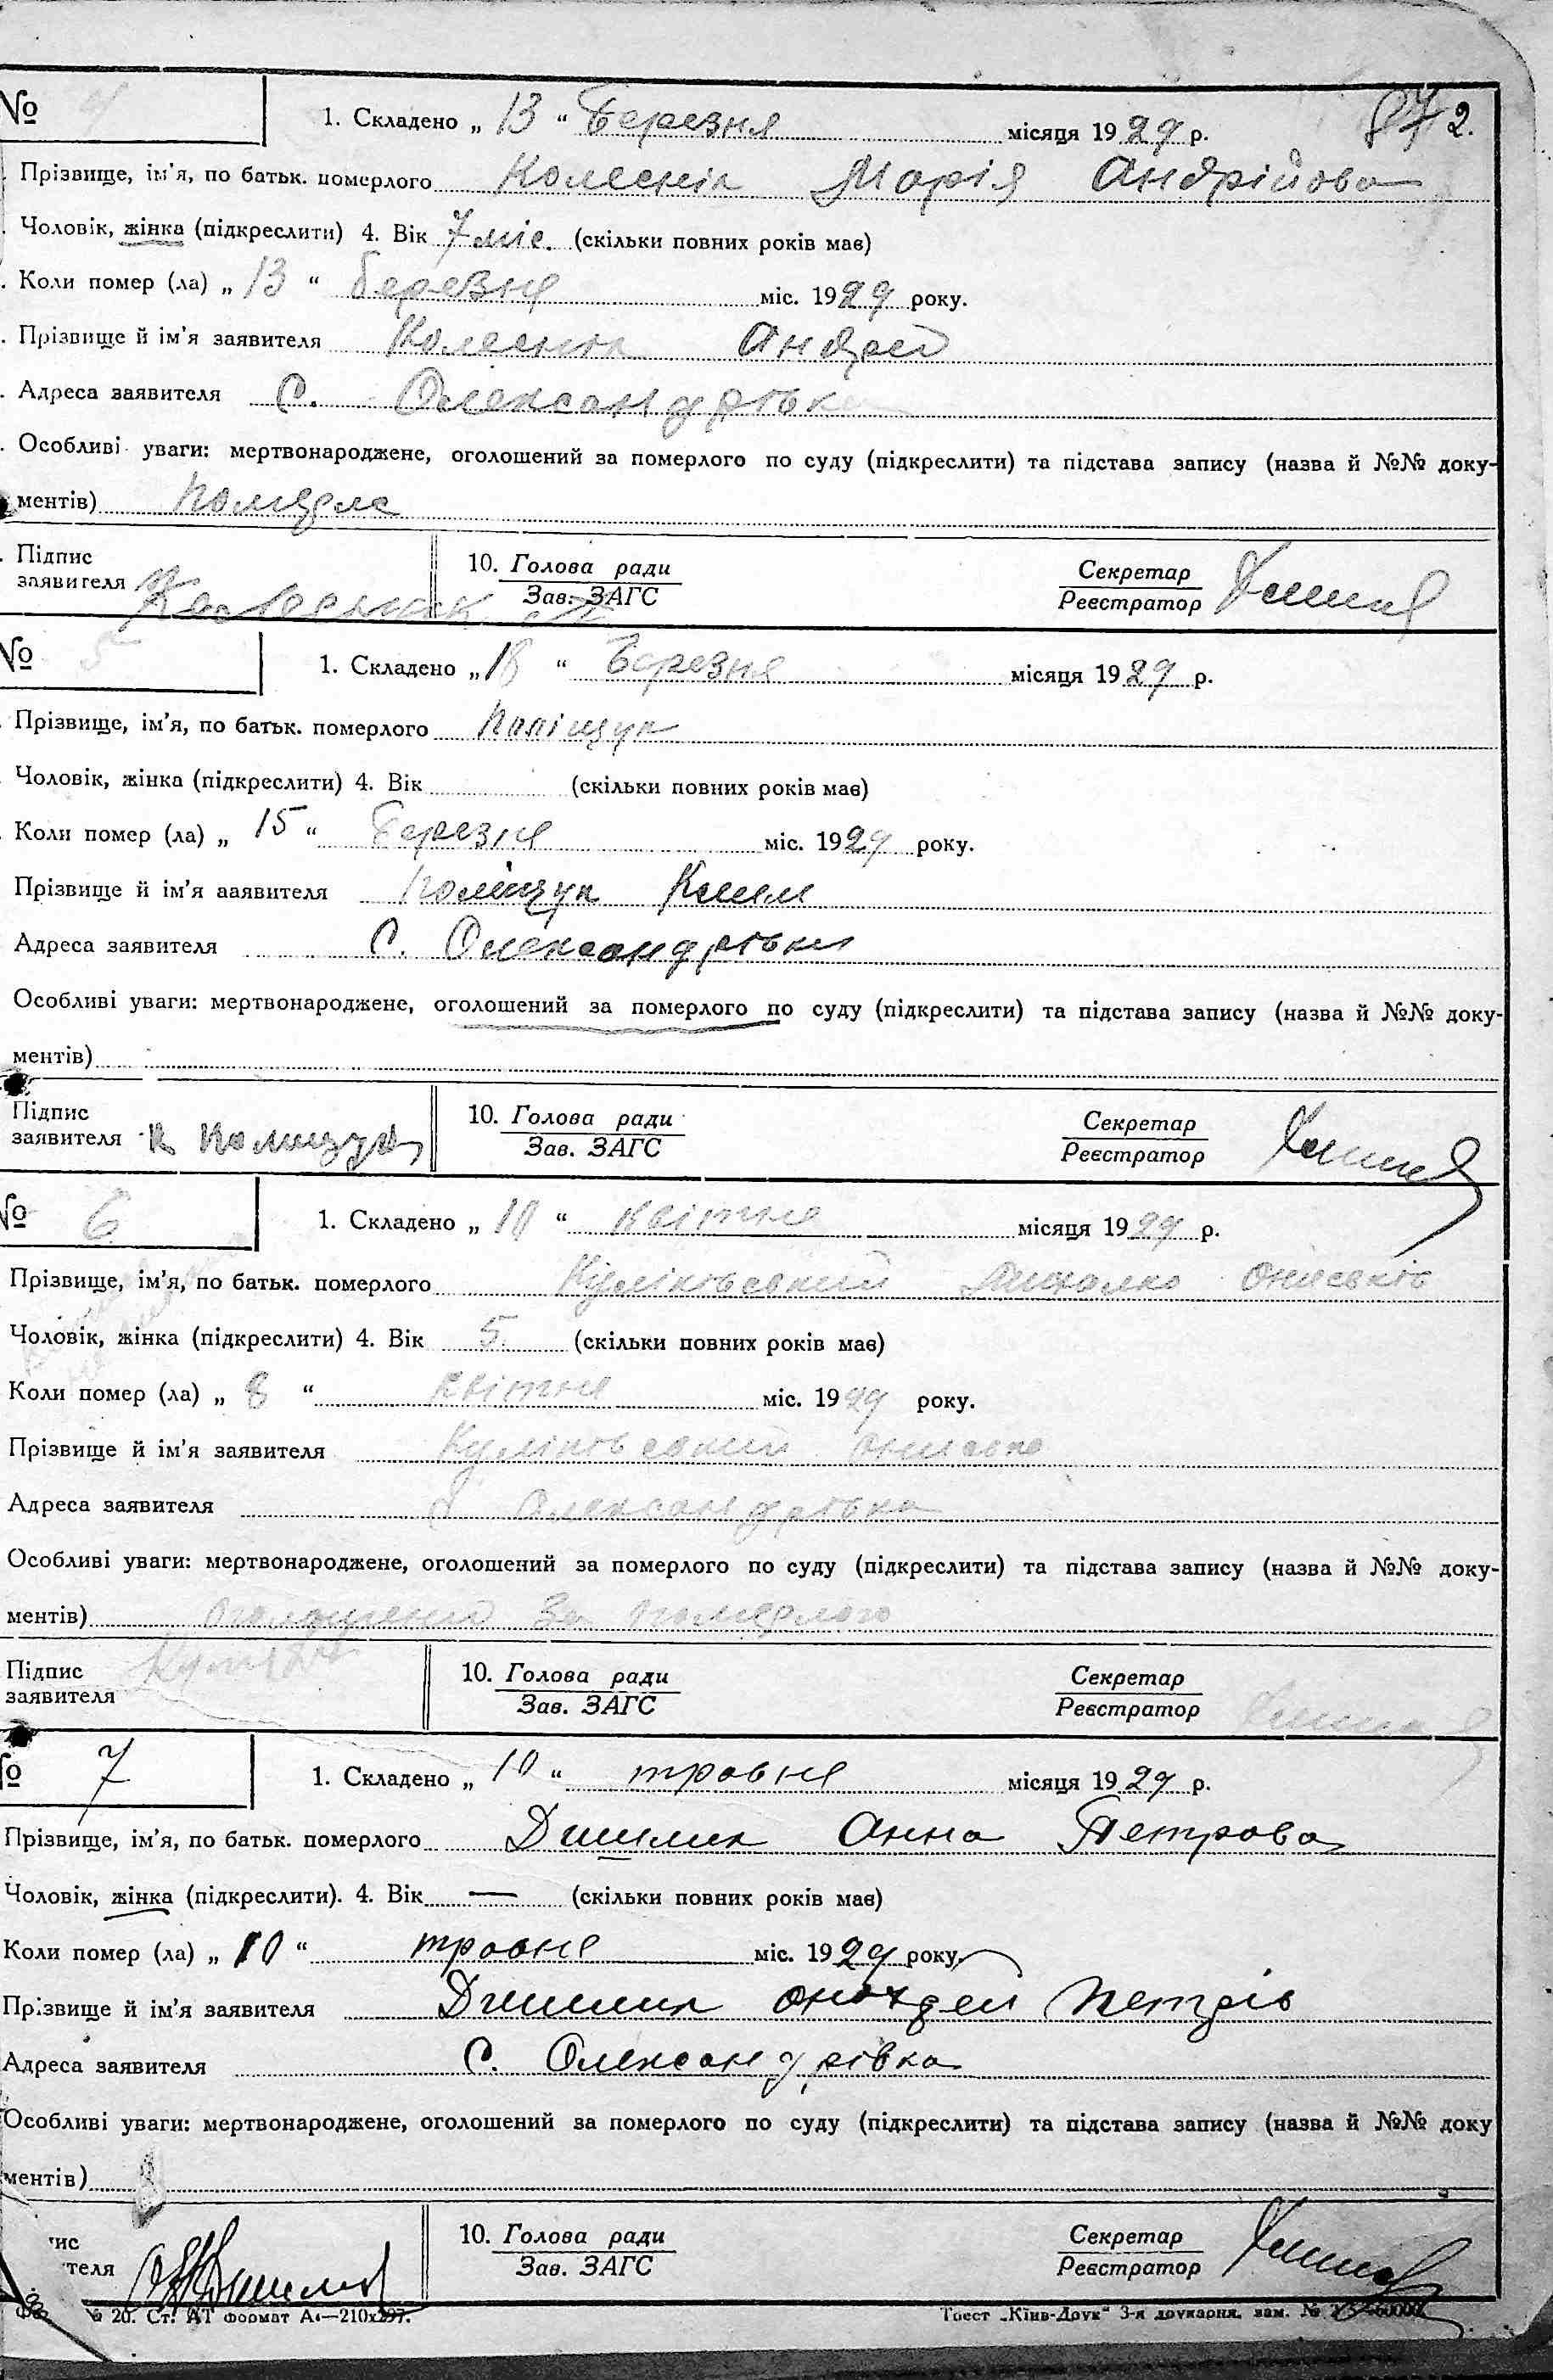 № 4 1. Складено „ 13 “ Березня місяця 1929 р. 87 2.
Прізвище, ім'я, по батьк. померлого Колеснік Марія Андрійова
Чоловік, жінка (підкреслити) 4. Вік 7 міс. (скільки повних років має)
Коли помер (ла) „ 13 “ березня міс. 1929 року.
Прізвище й ім'я заявителя Колеснік Андрей
Адреса заявителя С. Олександрівка
Особливі уваги: мертвонароджене, оголошений за померлого по суду (підкреслити) та підстава запису (назва й №№ доку-
ментів) Померла
Підпис 10. Голова ради Секретар
заявителя Колесник Зав. ЗАГС Реєстратор
№ 5 1. Складено „ 18 “ Березня місяця 1929 р.
Прізвище, ім'я, по батьк. померлого Поліщук
Чоловік, жінка (підкреслити) 4. Вік (скільки повних років має)
Коли помер (ла) „ 15 “ Березня міс. 1929 року.
Прізвище й ім'я ааявителя Поліщук Клим
Адреса заявителя С. Олександрівки
Особливі уваги: мертвонароджене, оголошений за померлого по суду (підкреслити) та підстава запису (назва й №№ доку-
ментів)
Підпис 10. Голова ради Секретар
заявителя К Полищук Зав. ЗАГС Реєстратор
№ 6 1. Складено „ 10 “ квітня місяця 1929 р.
Прізвище, ім'я, по батьк. померлого Куліківський Ониськів
Чоловік, жінка (підкреслити) 4. Вік 5. (скільки повних років має)
Коли помер (ла) „ 8 “ квітня міс. 1929 року.
Прізвище й ім'я заявителя Куліківський Онисько
Адреса заявителя С Олександрівка
Особливі уваги: мертвонароджене, оголошений за померлого по суду (підкреслити) та підстава запису (назва й №№ доку-
ментів) оголошений за померлого
Підпис 10. Голова ради Секретар
заявителя Зав. ЗАГС Реєстратор
№ 7 1. Складено „ 10 “ травня місяця 1929 р.
Прізвище, ім'я, по батьк. померлого Дишлик Анна Петрова
Чоловік, жінка (підкреслити). 4. Вік — (скільки повних років має)
Коли помер (ла) „ 10 “ травня міс. 1929 року.
Прізвище й ім'я заявителя Дишлик Петрів
Адреса заявителя С. Олександрівка
Особливі уваги: мертвонароджене, оголошений за померлого по суду (підкреслити) та підстава запису (назва й №№ доку
ментів)
ис 10. Голова ради Секретар
теля Зав. ЗАГС Реєстратор
№ 20. Ст. АТ формат А4—210х297. Трест „Київ-Друк“ 3-я друкарня. зам. №